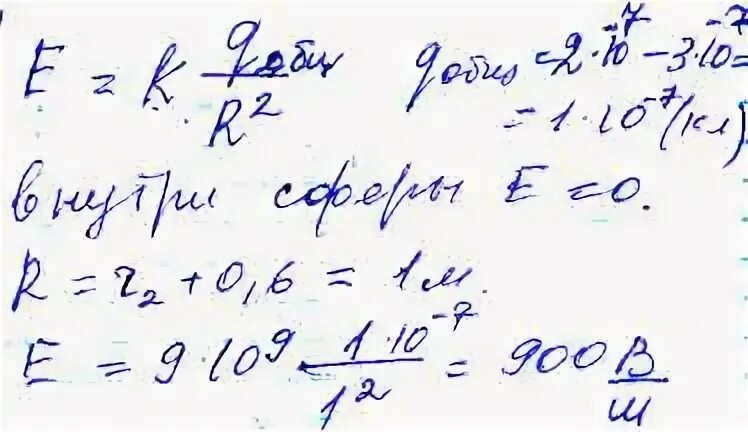 E = k qобщ/R² qобщ = 2·10⁻⁷ - 3·10⁻⁷ =
= 1·10⁻⁷ (кл)
внутри сферы E = 0.
R = r₂ + 0,6 = 1м.
E = 9·10⁹ · 1·10⁻⁷/1² = 900 В/м